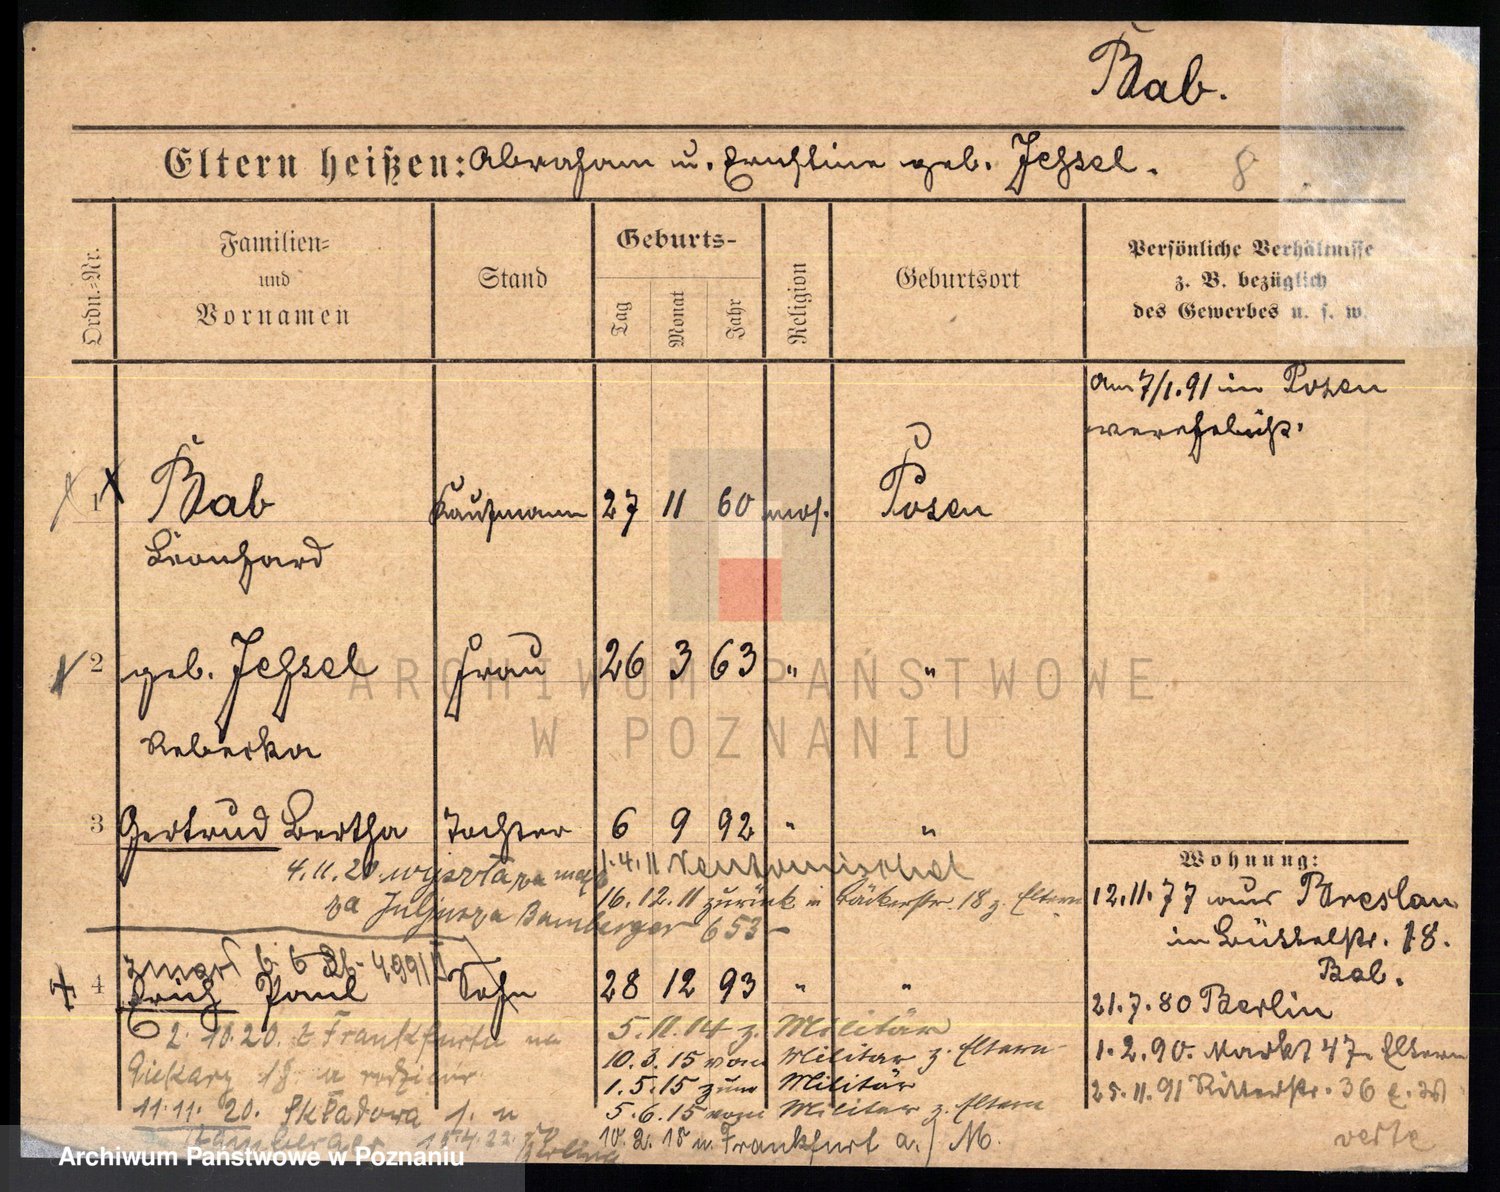 Bab.
Eltern heißen: Abraham u. Ernstine geb. Jessel.
8
Ordn.-Nr.
Familien-
und
Vornamen
Stand
Geburts-
Tag
Monat
Jahr
Religion
Geburtsort
Persönliche Verhältnisse
z. B. bezüglich
des Gewerbes u. s. w.
am 7/1.91 in Posen
verehelicht.
1 Bab Kaufmann 27 11 60 mos. Posen
Leonhard
2 geb. Jessel Frau 26 3 63 " "
Rebecka
3 Gertrud Bertha Tochter 6 9 92 " "
4.11.20. wyszła za mąż
za Juljusza Bamberger 653
1.4.11
16.12.11 zurück in Bäckerstr. 18 z. Eltern
4 Erich Paul Sohn 28 12 93 " "
2.10.20. z Frankfurtu na
Piekary 18 u
11.11.20. Składowa 1. u
Bamberger 15.4.22
5.11.14 z. Militär
10.3.15 vom Militär z. Eltern
1.5.15 zum Militär
5.6.15 vom Militär z. Eltern
10.2.18 n. Frankfurt a./M.
Wohnung:
12.11.77 aus Breslau
in Büttelstr. 18.
Bab.
21.7.80 Berlin
1.2.90. Markt 47 Eltern
25.11.91 Ritterstr. 36
verte
ARCHIWUM PAŃSTWOWE
W POZNANIU
Archiwum Państwowe w Poznaniu